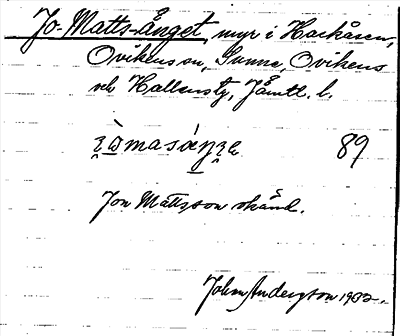 Jo-Matts-ånget, myr i Hackåsen,
Ovikens sn, Sunne, Ovikens
och Hallens tg, Jämtl. l.
89
Jon Mattsson skänd.
John Anderzon 1932.